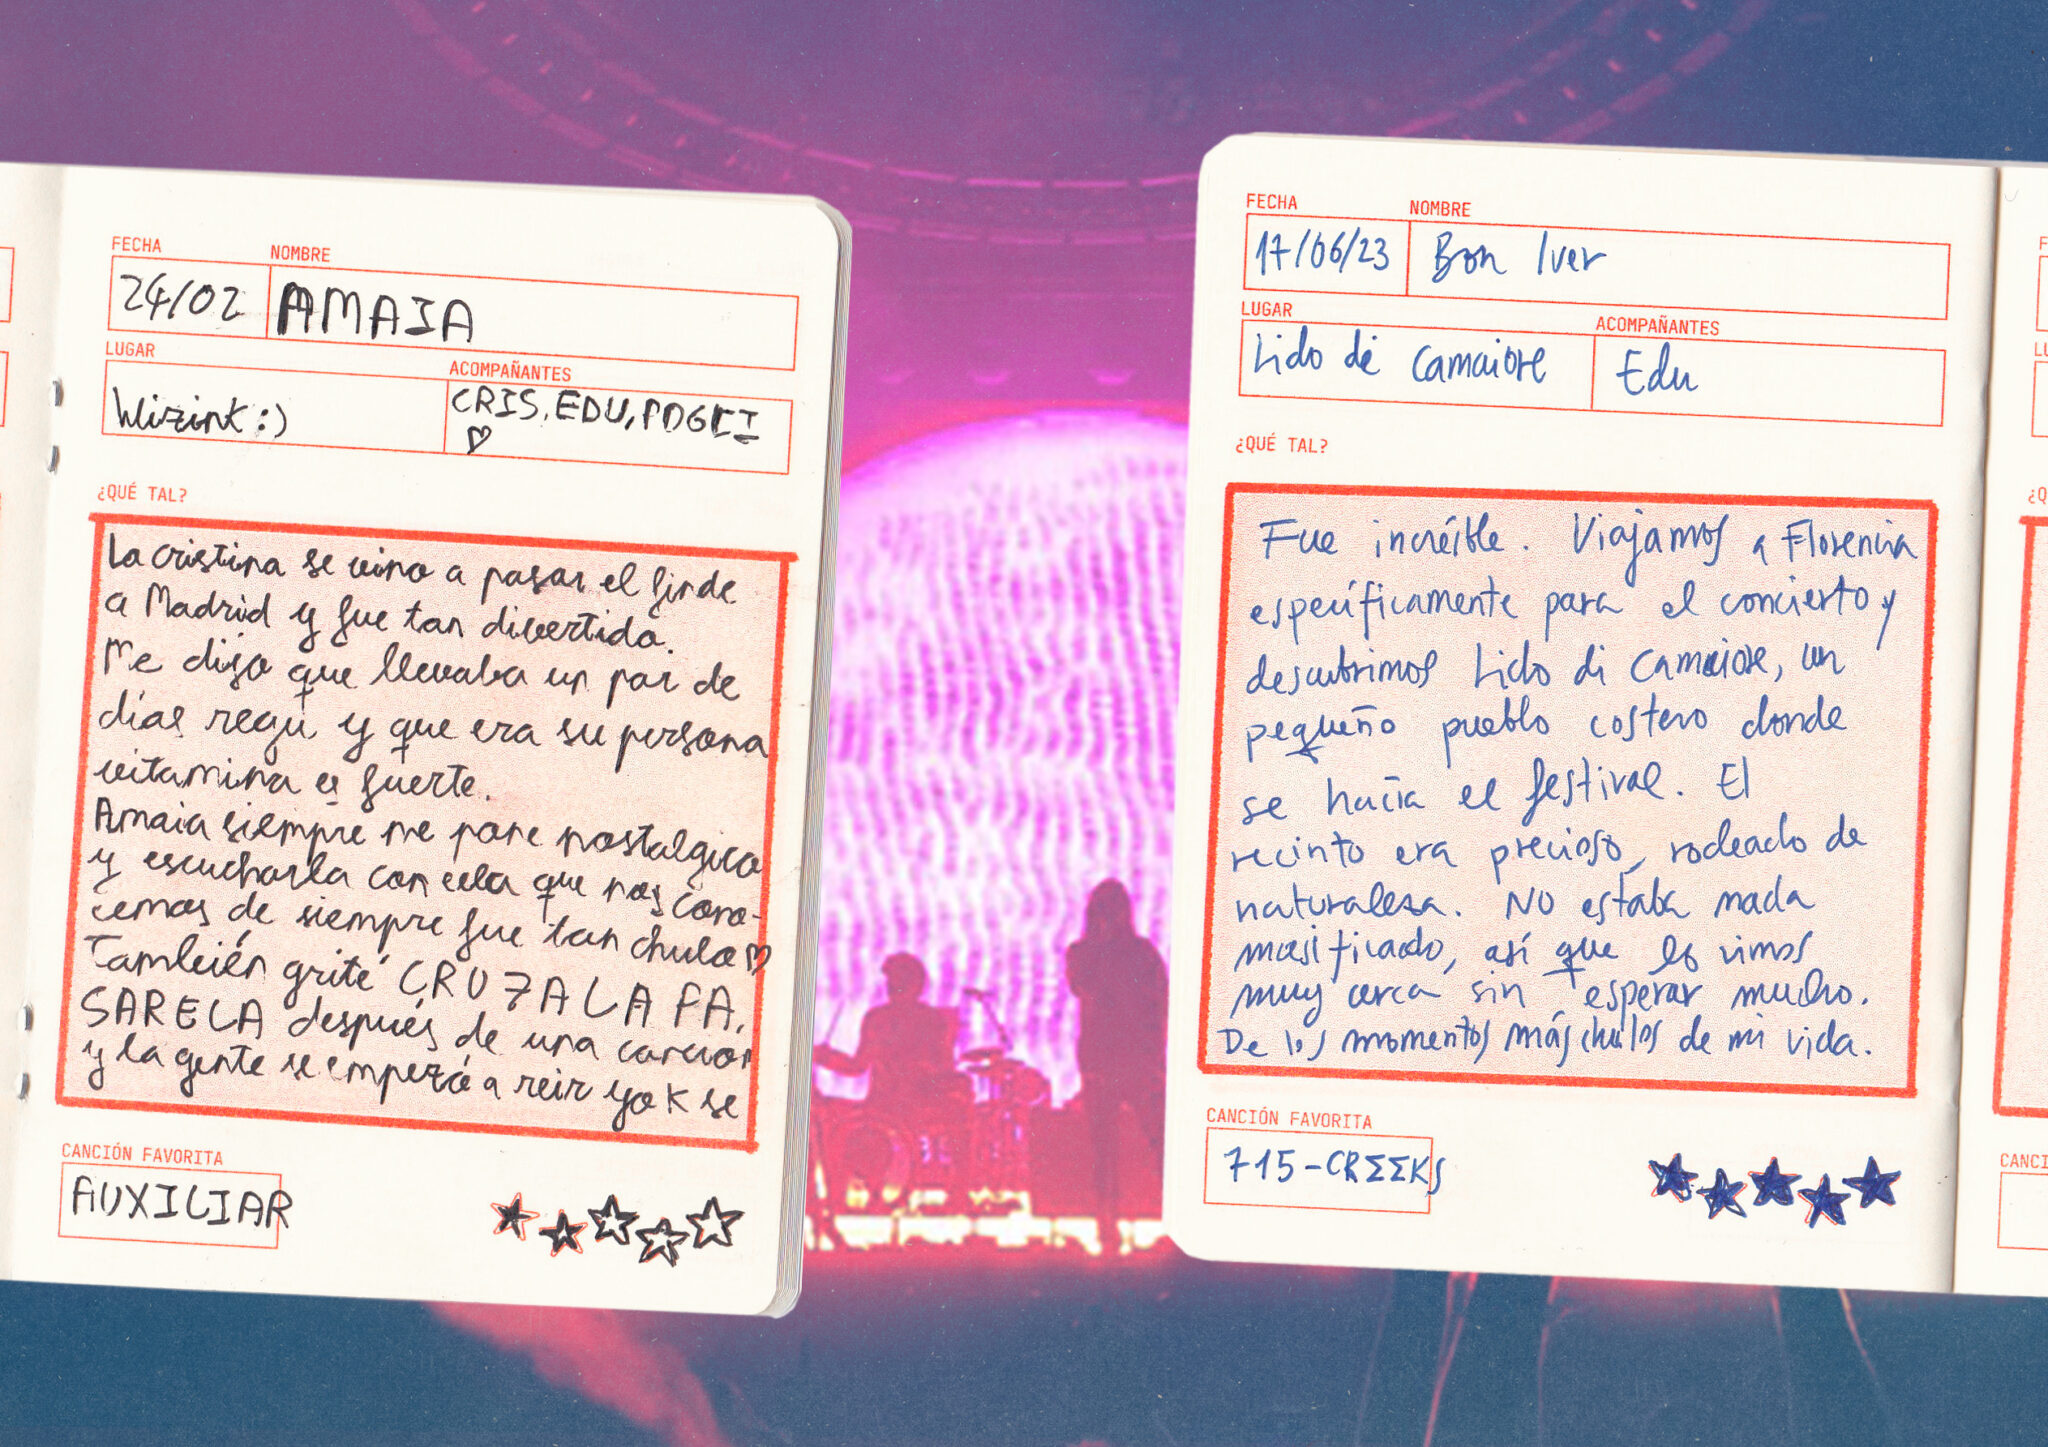 FECHA
NOMBRE
24/02
AMAIA
LUGAR
ACOMPAÑANTES
Wizink :)
CRIS, EDU,
♡
¿QUÉ TAL?
La cristina se vino a pasar el finde
a Madrid y fue tan divertido.
Me dijo que llevaba un par de
días regu y que era su persona
vitamina es fuerte.
Amaia siempre me pone nostalgico
y escucharla con ella que nos cono-
cemos de siempre fue tan chulo ♡
También grité CRUZA LA PA,
SARELA después de una cancion
y la gente se empezó a reir yo k se
CANCIÓN FAVORITA
AUXILIAR
FECHA
NOMBRE
17/06/23
Bon Iver
LUGAR
ACOMPAÑANTES
Lido di Camaiore
Edu
¿QUÉ TAL?
Fue increíble. Viajamos a Florencia
específicamente para el concierto y
descubrimos Lido di Camaiore, un
pequeño pueblo costero donde
se hacía el festival. El
recinto era precioso, rodeado de
naturaleza. No estaba nada
masificado, así que les vimos
muy cerca sin esperar mucho.
De los momentos más chulos de mi vida.
CANCIÓN FAVORITA
715-CRΣΣKS
F
LU
¿Q
CANCI